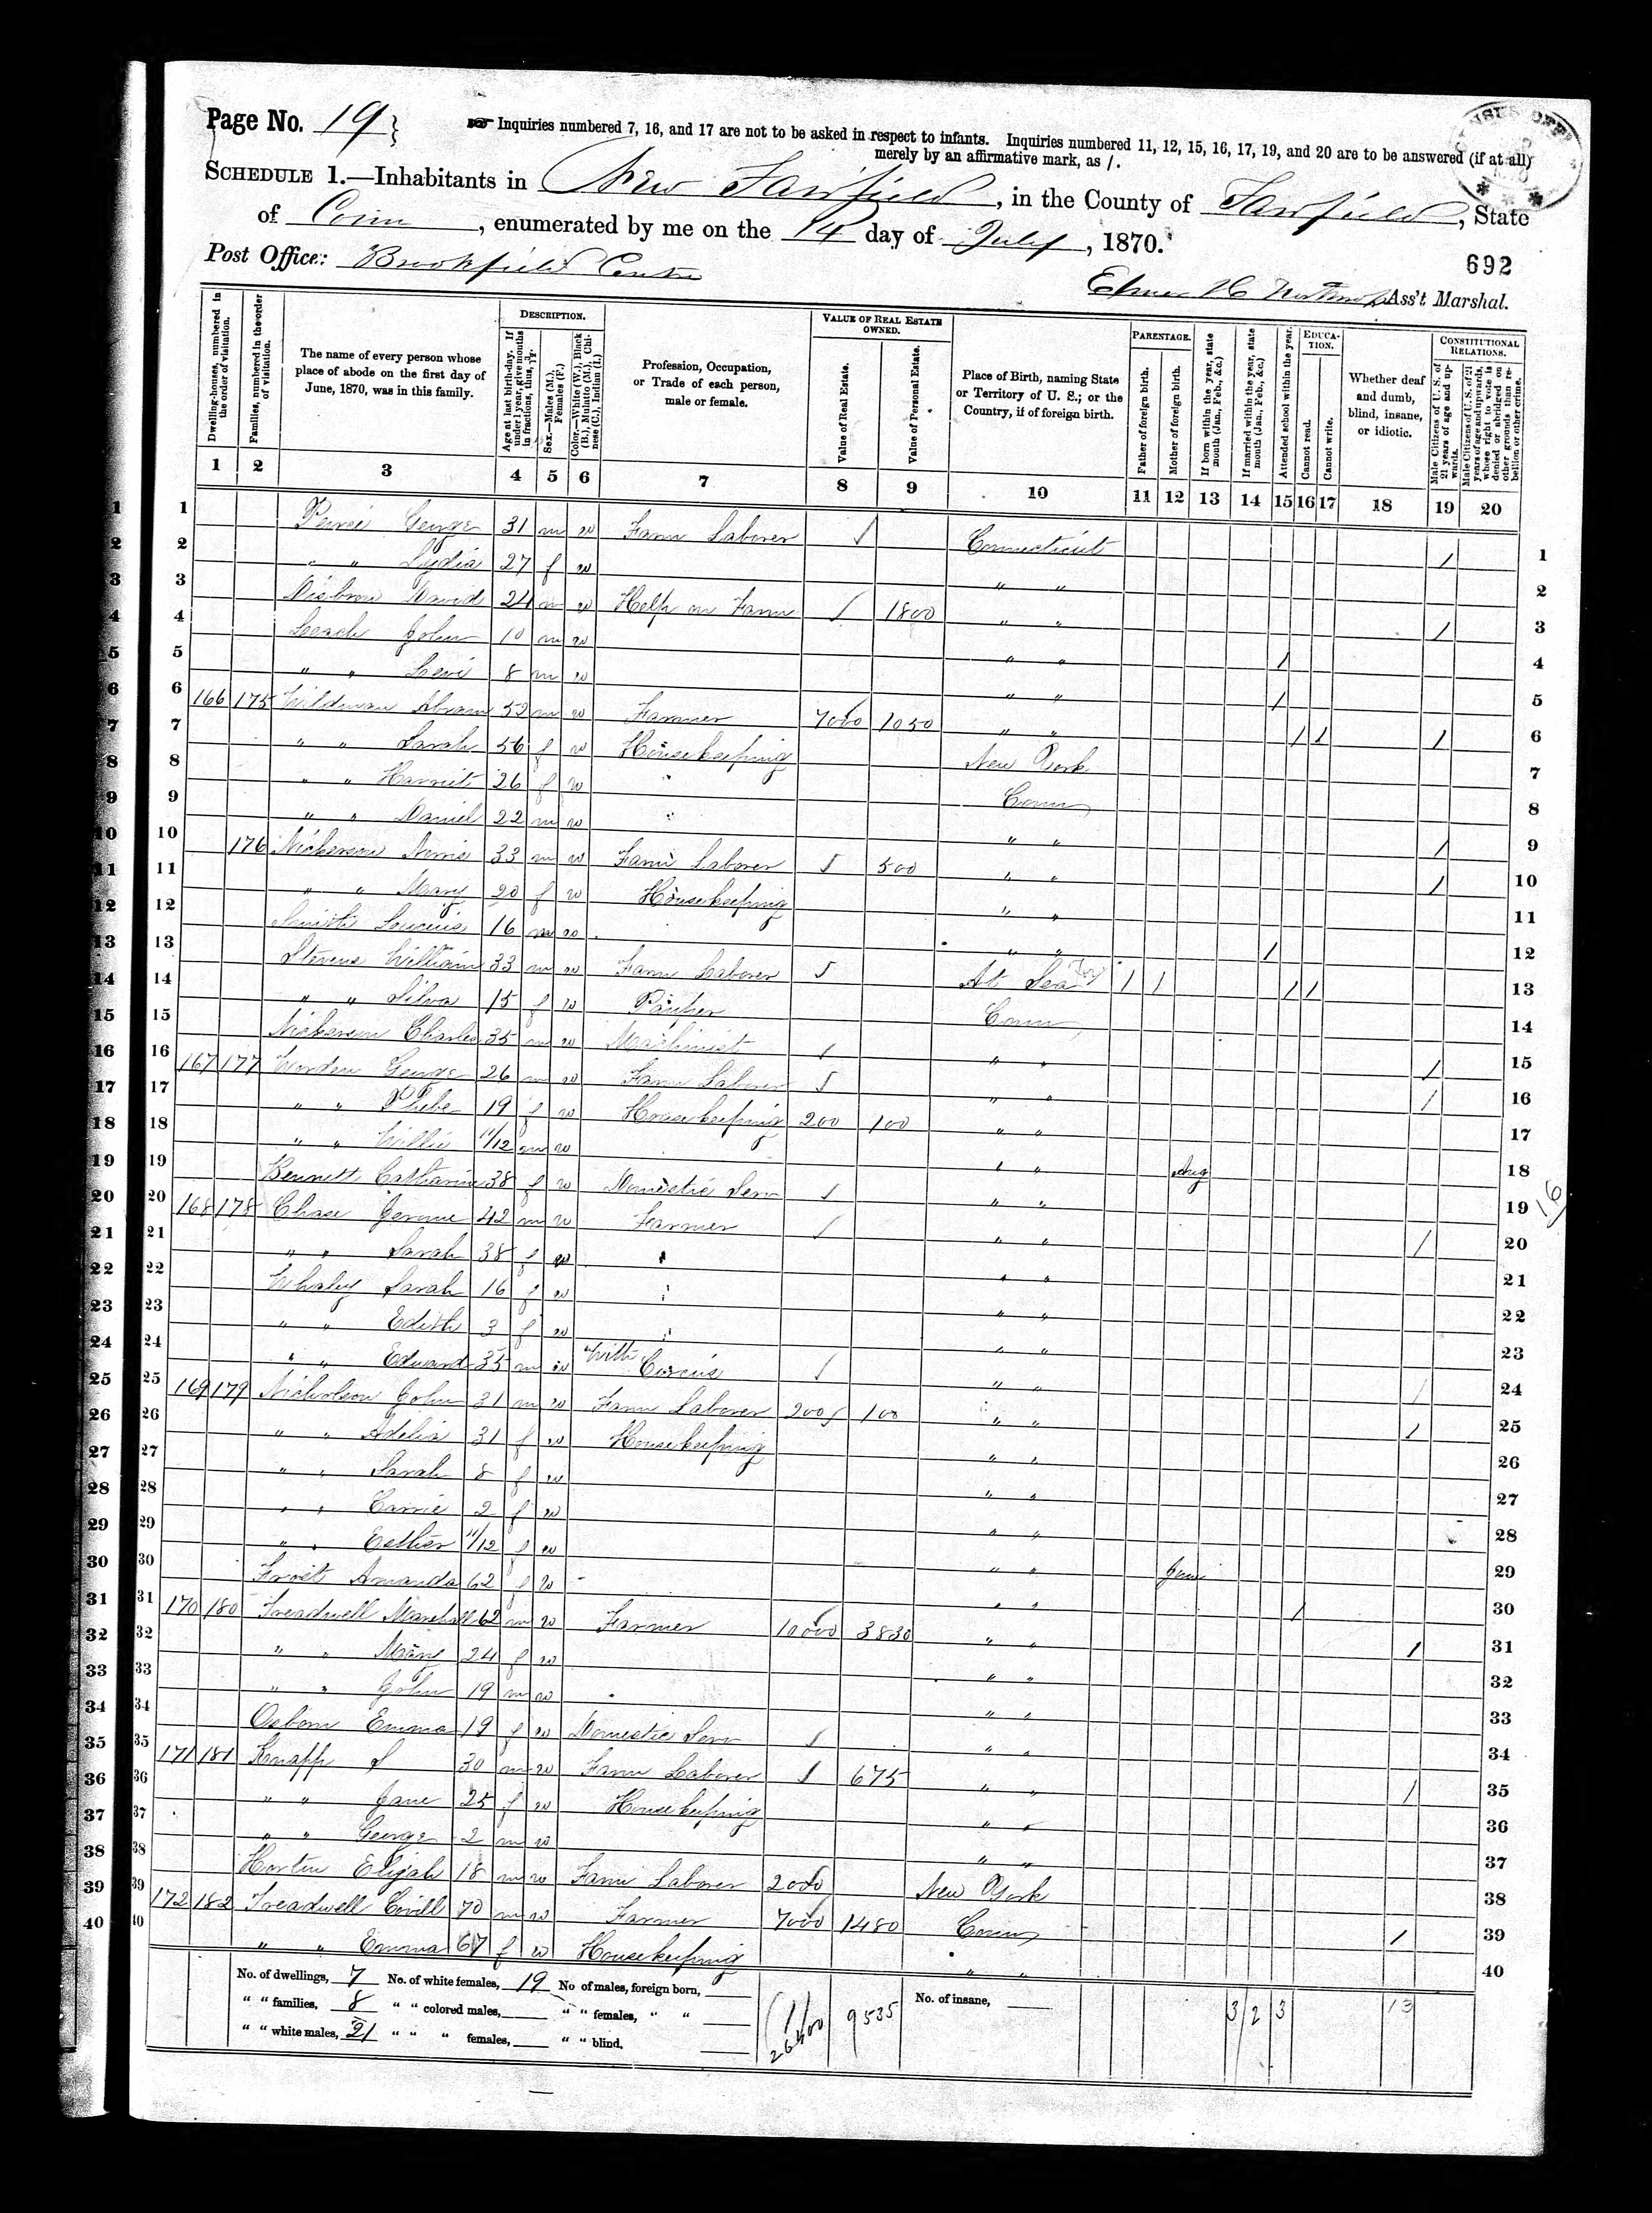 Page No. 19
Inquiries numbered 7, 16, and 17 are not to be asked in respect to infants. Inquiries numbered 11, 12, 15, 16, 17, 19, and 20 are to be answered (if at all)
merely by an affirmative mark, as /.
SCHEDULE 1.—Inhabitants in New Fairfield, in the County of Fairfield, State
of Conn, enumerated by me on the 14 day of July, 1870.
692
Post Office: Brookfield Centre
Ass't Marshal.
Dwelling-houses, numbered in the order of visitation.
Families, numbered in the order of visitation.
The name of every person whose place of abode on the first day of June, 1870, was in this family.
DESCRIPTION.
Age at last birth-day. If under 1 year, give months in fractions, thus, 3/12.
Sex.—Males (M.), Females (F.)
Color.—White (W.), Black (B.), Mulatto (M.), Chinese (C.), Indian (I.)
Profession, Occupation, or Trade of each person, male or female.
VALUE OF REAL ESTATE OWNED.
Value of Real Estate.
Value of Personal Estate.
Place of Birth, naming State or Territory of U. S.; or the Country, if of foreign birth.
PARENTAGE.
Father of foreign birth.
Mother of foreign birth.
If born within the year, state month (Jan., Feb., &c.)
If married within the year, state month (Jan., Feb., &c.)
Attended school within the year.
EDUCATION.
Cannot read.
Cannot write.
Whether deaf and dumb, blind, insane, or idiotic.
CONSTITUTIONAL RELATIONS.
Male Citizens of U. S. of 21 years of age and upwards.
Male Citizens of U. S. of 21 years of age and upwards, whose right to vote is denied or abridged on other grounds than rebellion or other crime.
1 2 3 4 5 6 7 8 9 10 11 12 13 14 15 16 17 18 19 20
1 George 31 m w Farm Laborer / Connecticut / 1
2 " " Lydia 27 f w " " 2
3 Disbrow David 24 m w Help on Farm / 1800 " " / 3
4 Leach John 10 m w " " / 4
5 " " Levi 8 m w " " / 5
6 166 175 Wildman Abram 52 m w Farmer 7000 1050 " " / / / 6
7 " " Sarah 56 f w Housekeeping New York 7
8 " " Harriet 26 f w " Conn 8
9 " " Daniel 22 m w " " " / 9
10 176 Nickerson 33 m w Farm Laborer / 500 " " / 10
11 " " Mary 20 f w Housekeeping " " 11
12 Smith Lucius 16 m w " " / 12
13 Stevens William 33 m w Farm Laborer / At Sea / / / / 13
14 " " Silva 15 f w Pauper Conn 14
15 Nickerson Charles 35 m w Machinist / " " / 15
16 167 177 Worden George 26 m w Farm Laborer / " " / 16
17 " " Phebe 19 f w Housekeeping 200 100 " " 17
18 " " Willie 11/12 m w " " Aug 18
19 Bennett Catharine 38 f w Domestic Serv / " " 19
16
20 168 178 Chase Jerome 42 m w Farmer / " " / 20
21 " " Sarah 38 f w " " " 21
22 Whaley Sarah 16 f w " " " 22
23 " " Edith 3 f w " " " 23
24 " " Edward 35 m w With Circus / " " / 24
25 169 179 Nicholson John 31 m w Farm Laborer 200 100 " " / 25
26 " " Adelia 31 f w Housekeeping " " 26
27 " " Sarah 8 f w " " 27
28 " " Carrie 2 f w " " 28
29 " " Esther 11/12 f w " " June 29
30 Frost Amanda 62 f w " " / 30
31 170 180 Treadwell Marshall 62 m w Farmer 10000 3830 " " / 31
32 " " Mary 24 f w " " 32
33 " " John 19 m w " " 33
34 Osborn Emma 19 f w Domestic Serv / " " 34
35 171 181 Knapp S 30 m w Farm Laborer / 675 " " / 35
36 " " Jane 25 f w Housekeeping " " 36
37 " " George 2 m w " " 37
38 Elijah 18 m w Farm Laborer 2000 New York 38
39 172 182 Treadwell 70 m w Farmer 7000 1480 Conn / 39
40 " " Emma 67 f w Housekeeping " " 40
No. of dwellings, 7 No. of white females, 19 No of males, foreign born,
" " families, 8 " " colored males, " " females, " "
" " white males, 21 " " " females, " " blind,
26400 9535 No. of insane, 3 2 3 13